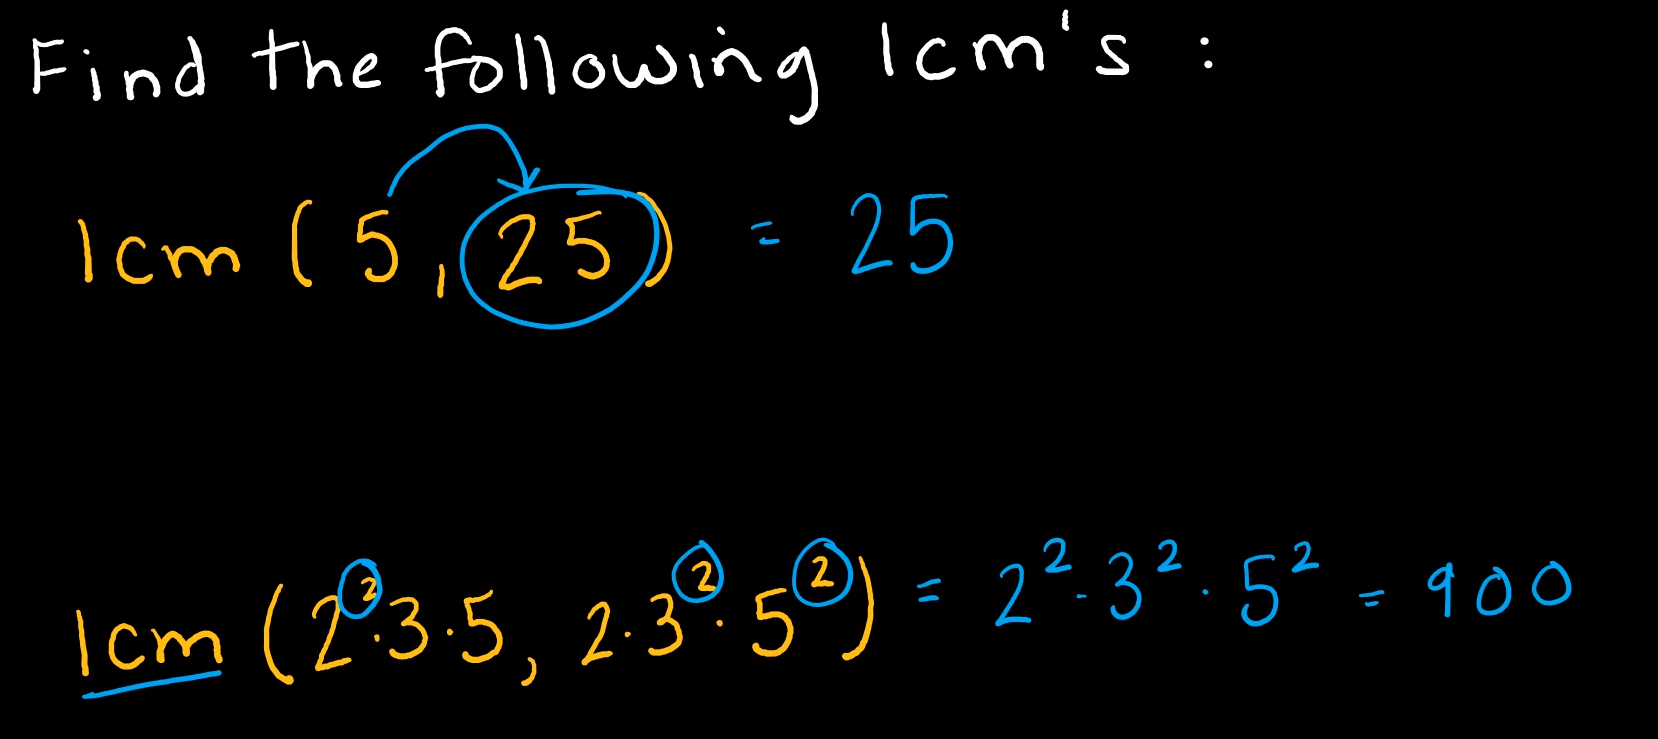 Find the following lcm's :
lcm ( 5 , 25 ) = 25
lcm ( 2² · 3 · 5 , 2 · 3² · 5² ) = 2² · 3² · 5² = 900